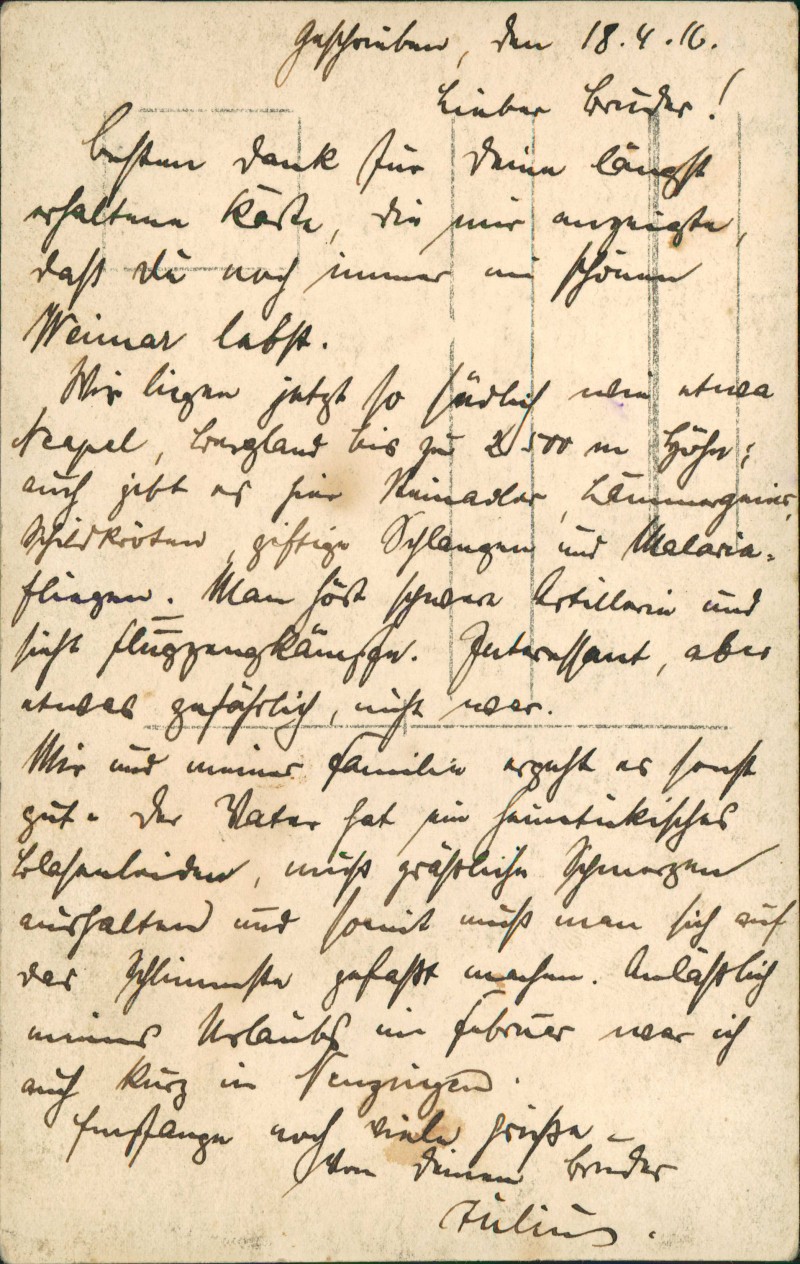 Geschrieben, den 18.4.16.
Lieber Bruder!
Besten Dank für deine längst
erhaltene Karte, die mir anzeigte,
daß du noch immer im schönen
Weimar lebst.
Wir liegen jetzt so südlich wie etwa
Neapel, Bergland bis zu 2500 m Höhe;
auch gibt es hier Steinadler, Lämmergeier,
Schildkröten, giftige Schlangen und Malaria-
fliegen. Man hört schwere Artillerie und
sieht Flugzeugkämpfe. Interessant, aber
etwas gefährlich, nicht war.
Mir und meiner Familie ergeht es sonst
gut. Der Vater hat ein heimtükisches
Blasenleiden, muß gräßliche Schmerzen
aushalten und somit muß man sich auf
das Schlimmste gefaßt machen. Anläßlich
meines Urlaubs im Februar war ich
auch kurz in Nenzingen.
Empfange noch viele Grüße
von deinem Bruder
Julius.